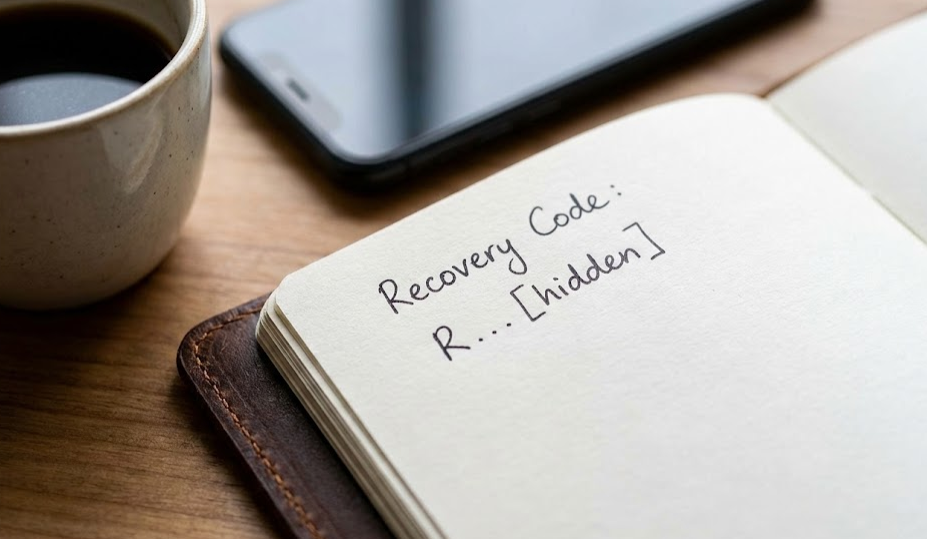 Recovery Code:
R...[hidden]